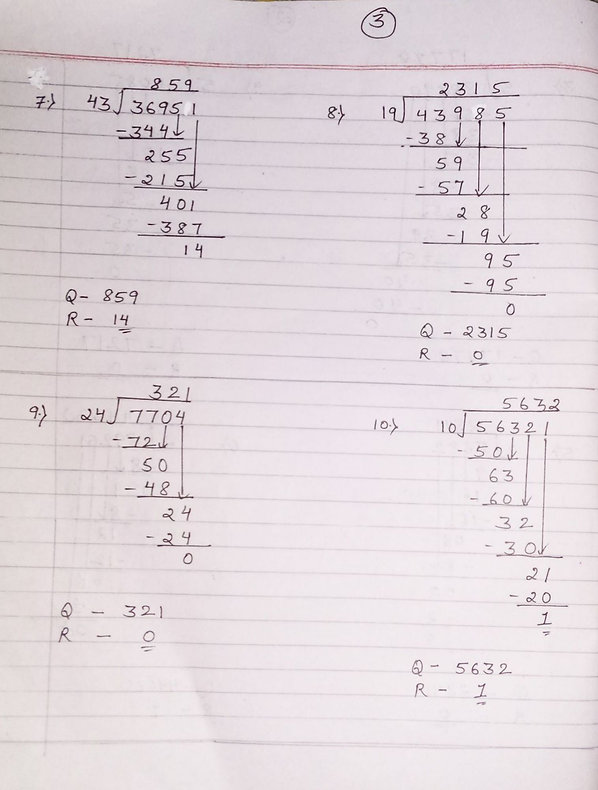 3
7.) 859
43 36951
-344
255
-215
401
-387
14
Q- 859
R- 14
8.) 2315
19 43985
-38
59
- 57
28
-19
95
- 95
0
Q - 2315
R - 0
9.) 321
24 7704
-72
50
- 48
24
- 24
0
Q - 321
R - 0
10.) 5632
10 56321
- 50
63
- 60
32
- 30
21
- 20
1
Q- 5632
R - 1